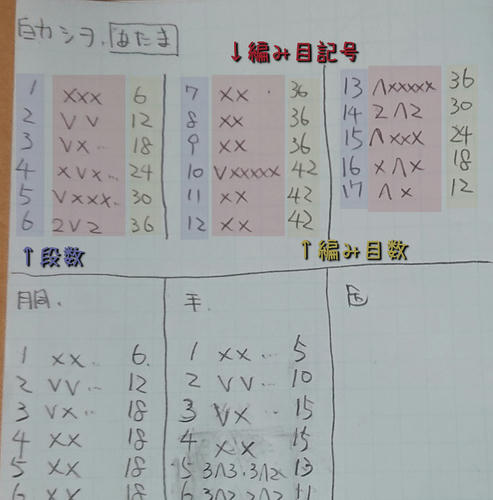 白カシヲ. あたま
↓編み目記号
1 xxx 6
2 V V 12
3 Vx.. 18
4 xVx... 24
5 Vxxx.. 30
6 2V2 36
7 xx . 36
8 xx 36
9 xx 36
10 Vxxxxx 42
11 xx 42
12 xx 42
13 Λxxxxx 36
14 2Λ2 30
15 Λxxx 24
16 xΛx 18
17 Λx 12
↑段数
↑編み目数
胴.
1 xx.. 6.
2 VV.. 12
3 Vx.. 18
4 xx 18
5 xx 18
6 xx 18
手.
1 xx... 5
2 VV... 10
3 Vx 15
4 xx 15
5 3Λ3.3Λ2 13
6 3Λ2.2Λ2 11